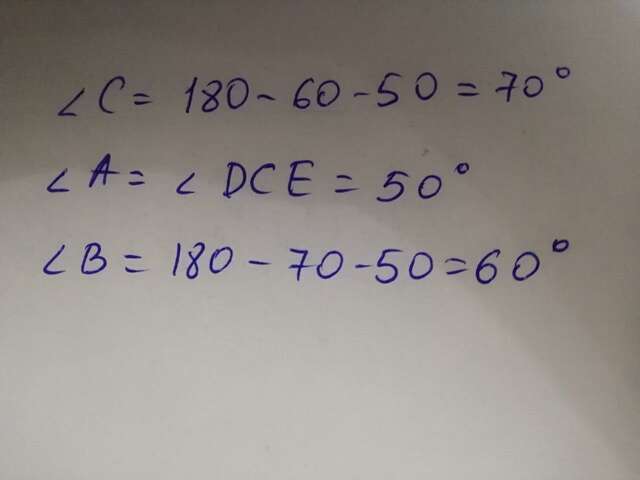 ∠C = 180 - 60 - 50 = 70°
∠A = ∠DCE = 50°
∠B = 180 - 70 - 50 = 60°